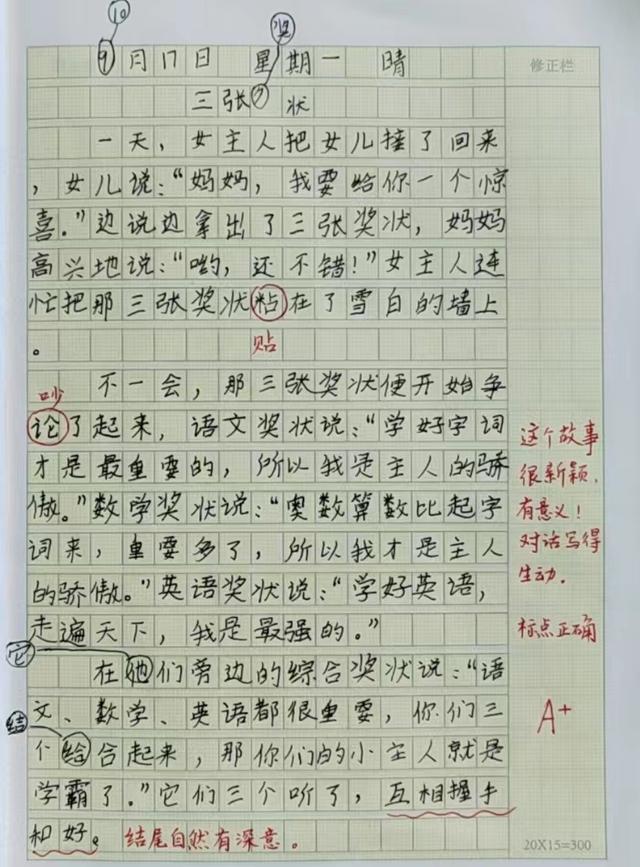 10
奖
9月17日 星期一 晴
修正栏
三张 状
一天，女主人把女儿接了回来
，女儿说：“妈妈，我要给你一个惊
喜。”边说边拿出了三张奖状，妈妈
高兴地说：“哟，还不错！”女主人连
忙把那三张奖状粘在了雪白的墙上
。
贴
不一会，那三张奖状便开始争
吵
论了起来，语文奖状说：“学好字词
才是最重要的，所以我是主人的骄
傲。”数学奖状说：“奥数算数比起字
词来，重要多了，所以我才是主人
的骄傲。”英语奖状说：“学好英语，
走遍天下，我是最强的。”
它
在她们旁边的综合奖状说：“语
文、数学、英语都很重要，你们三
结
个给合起来，那你们的小主人就是
学霸了。”它们三个听了，互相握手
和好。结尾自然有深意。
这个故事
很新颖，
有意义！
对话写得
生动。
标点正确
A+
20X15=300